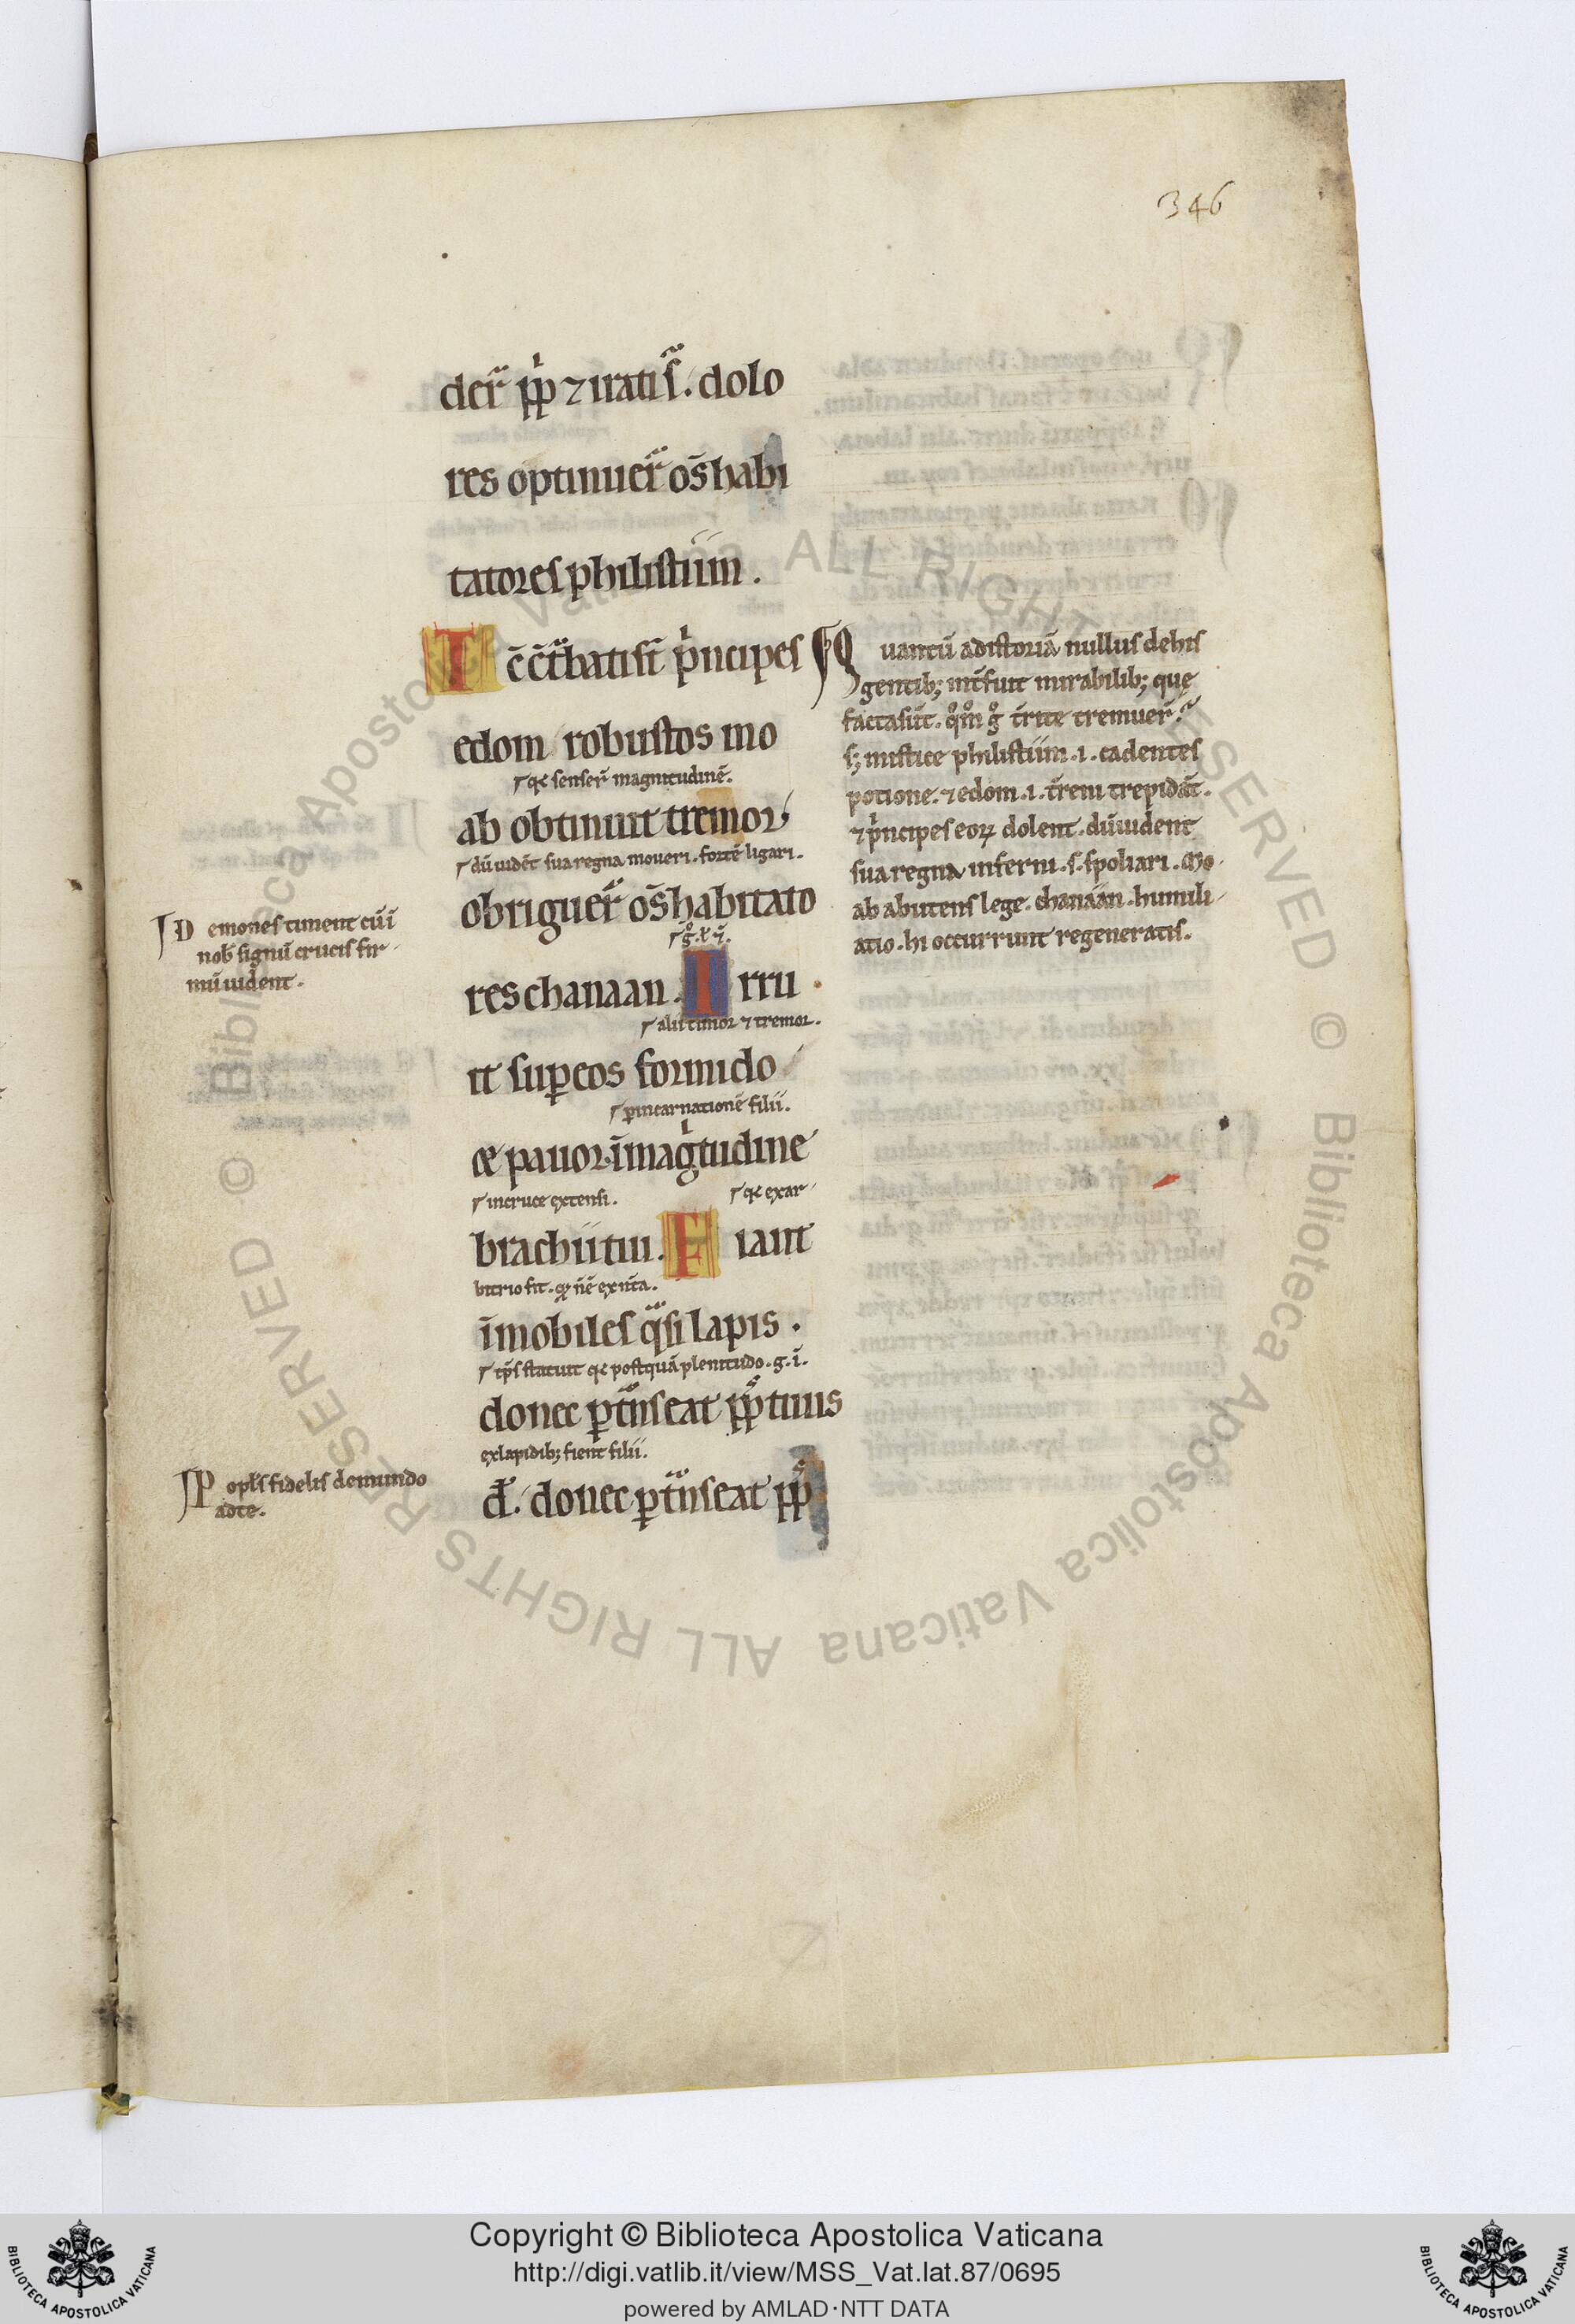 346
der̃ pp̱ ⁊ irati s̃. dolo
res optinuer̃ os̄ habi
tatores philistiim.
T c̄ c̄t̃bati st̄ p̍ncipes
edom robustos mo
qꝫ senser̃ magnitudinē.
ab obtinuit tremor
dū uidēt sua regna moueri. fortē ligari.
obriguer̃ os̄ habitato
res chanaan. I rru
alii timor ⁊ tremor.
it sup eos formido
p incarnationē filii.
& pauor. ī mag̍tudine
in cruce extensi.
qꝫ exar
brachii tui. F iant
bitrio fit.
īmobiles q̃si lapis.
statuit qꝫ postquā plenitudo. g. ī.
donec p̱t̃nseat pp̱ tuus
ex lapidibꝫ fient filii.
dꝉ. donec p̱t̃nseat pp̱
D emones timent cū ī
nob̄ signū crucis fir
mū uident.
P opl̄s fidelis de mundo
ad te.
Q uantū ad istoriā nullus de his
gentibꝫ int̄fuit mirabilibꝫ que
facta sūt. q̊m̊ g̊ t̄rite tremuer̃?
sꝫ mistice philistiim .i. cadentes
potione. ⁊ edom .i. t̄reni trepidāt.
⁊ p̍ncipes eoꝝ dolent. dū uident
sua regna inferni .s. spoliari. Mo
ab abutens lege. chanaan. humili
atio. hi occurrunt regeneratis.
Copyright © Biblioteca Apostolica Vaticana
http://digi.vatlib.it/view/MSS_Vat.lat.87/0695
powered by AMLAD·NTT DATA
BIBLIOTECA APOSTOLICA VATICANA
BIBLIOTECA APOSTOLICA VATICANA
© Biblioteca Apostolica Vaticana ALL RIGHTS RESERVED
© Biblioteca Apostolica Vaticana ALL RIGHTS RESERVED